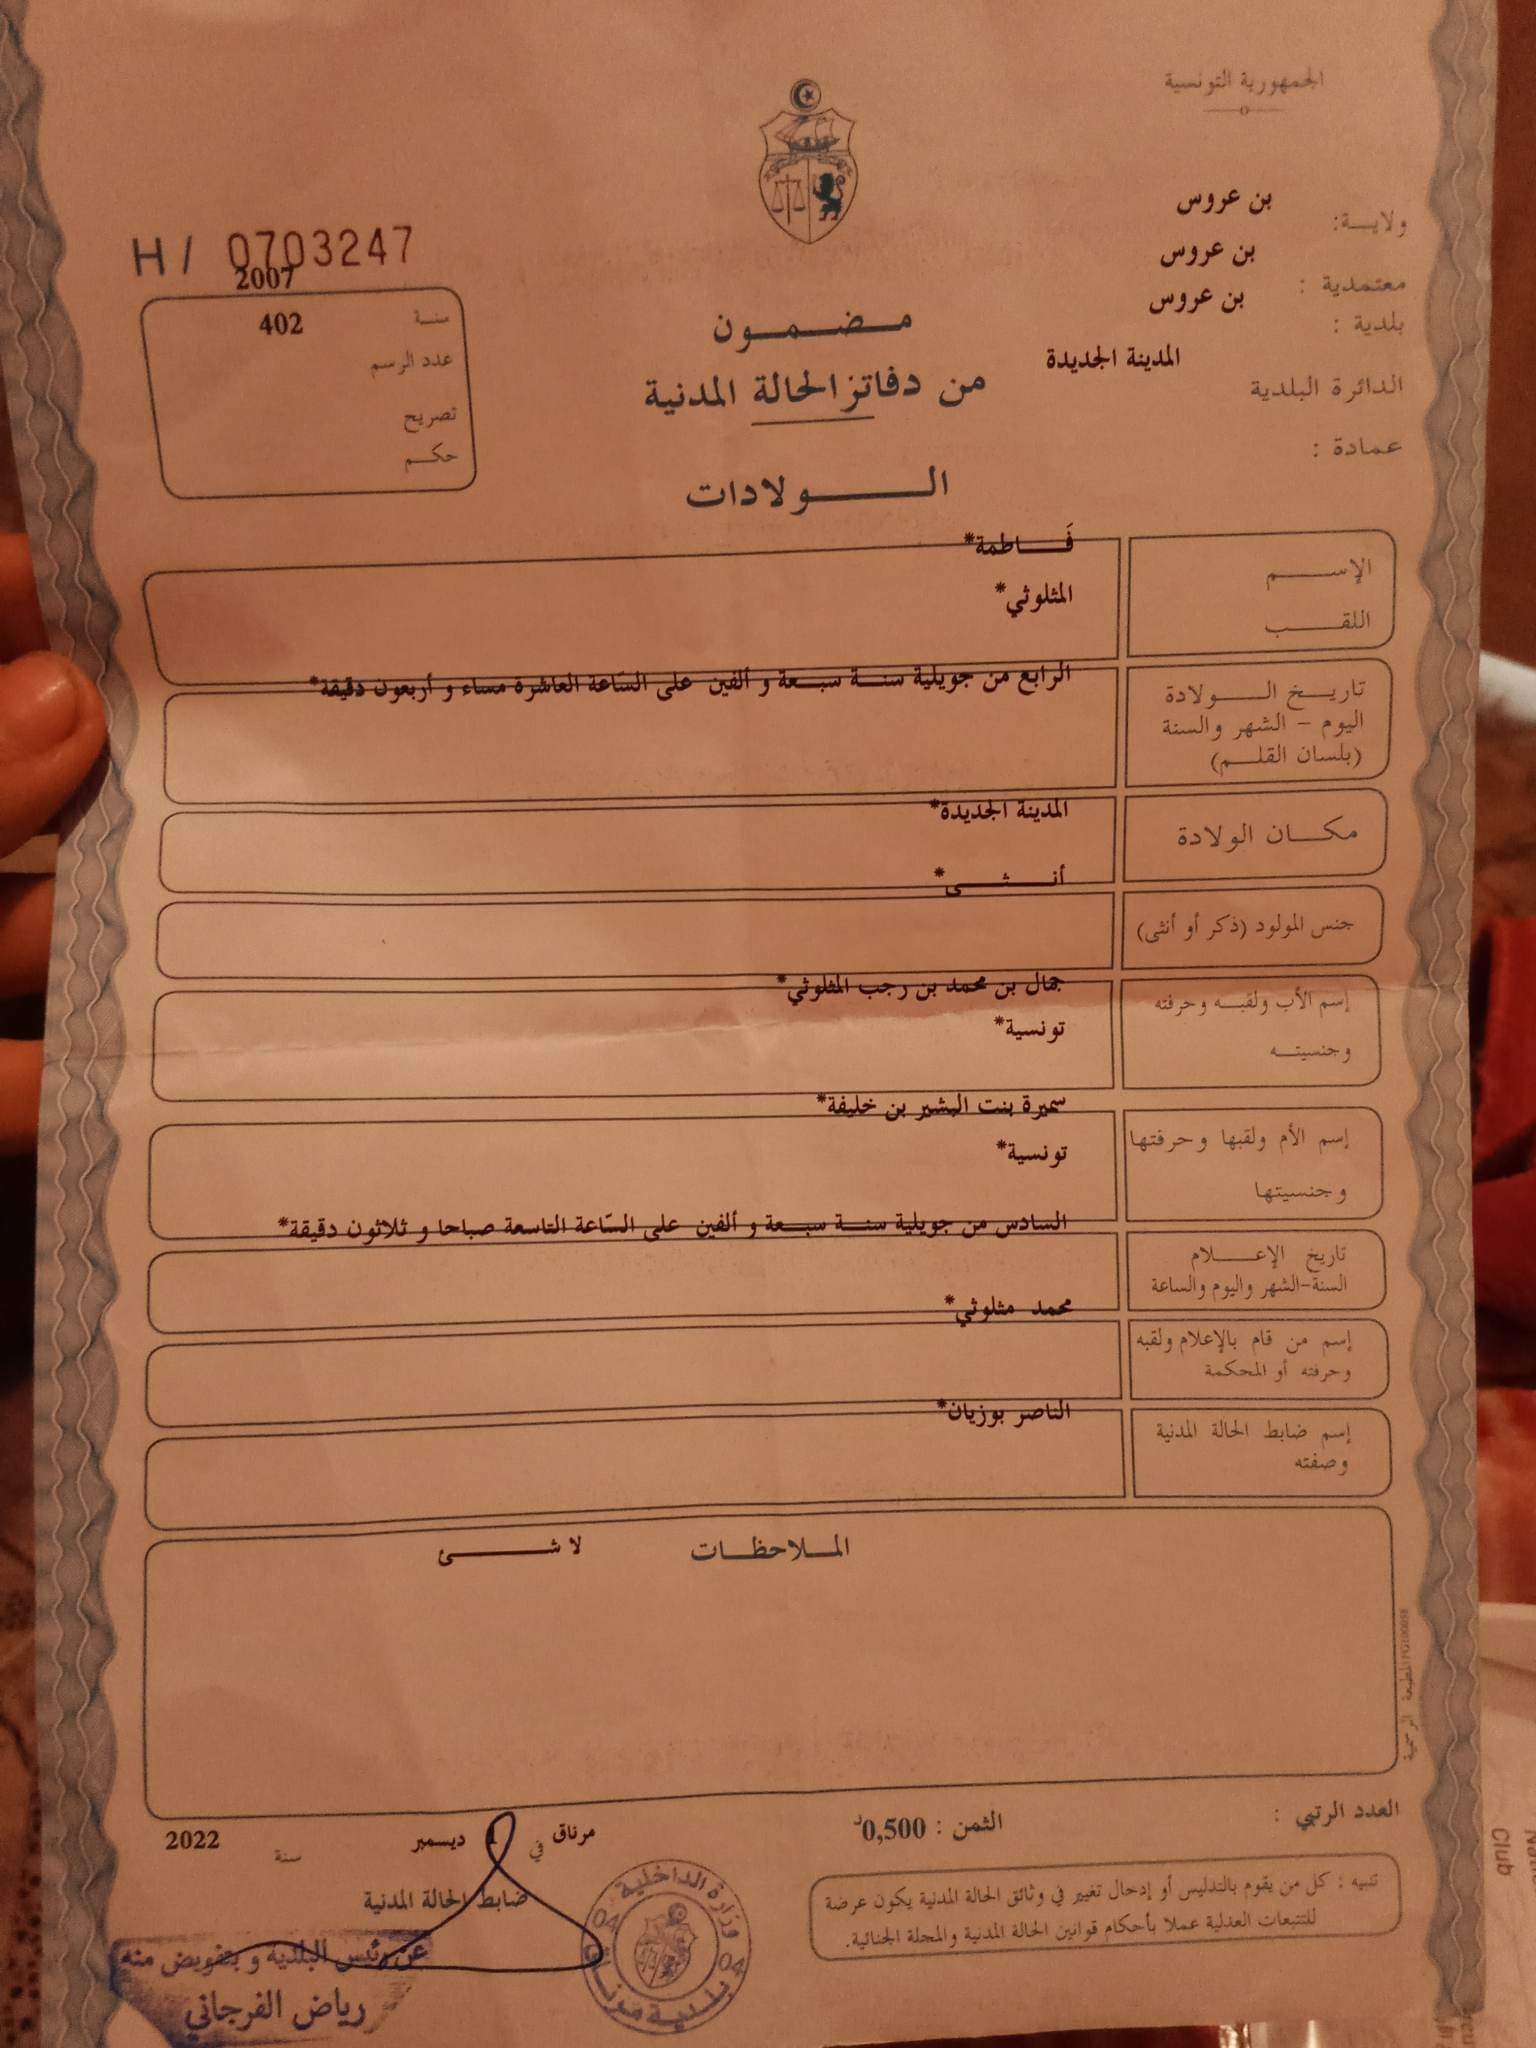 الجمهورية التونسية
ولاية: بن عروس
معتمدية : بن عروس
بلدية : بن عروس
الدائرة البلدية المدينة الجديدة
عمادة :
H / 0703247
2007
سنة 402
عدد الرسم
تصريح
حكم
مضمون
من دفاتر الحالة المدنية
الولادات
الإسم فَاطمة*
اللقب المثلوثي*
تاريخ الولادة الرابع من جويلية سنة سبعة و ألفين على السّاعة العاشرة مساء و أربعون دقيقة*
اليوم - الشهر والسنة
(بلسان القلم)
مكان الولادة المدينة الجديدة*
جنس المولود (ذكر أو أنثى) أنثى*
إسم الأب ولقبه وحرفته جمال بن محمد بن رجب المثلوثي*
وجنسيته تونسية*
إسم الأم ولقبها وحرفتها سميرة بنت البشير بن خليفة*
وجنسيتها تونسية*
تاريخ الإعلام السادس من جويلية سنة سبعة و ألفين على السّاعة التاسعة صباحا و ثلاثون دقيقة*
السنة-الشهر واليوم والساعة
إسم من قام بالإعلام ولقبه محمد مثلوثي*
وحرفته أو المحكمة
إسم ضابط الحالة المدنية الناصر بوزيان*
وصفته
الملاحظات لا شئ
المطبعة الرسمية
العدد الرتبي :
الثمن : 0,500د
مرناق في 1 ديسمبر سنة 2022
ضابط الحالة المدنية
تنبيه : كل من يقوم بالتدليس أو إدخال تغيير في وثائق الحالة المدنية يكون عرضة
للتتبعات العدلية عملا بأحكام قوانين الحالة المدنية والمجلة الجنائية.
وزارة الداخلية
04 04
بلدية مرناق
عن رئيس البلدية و بتفويض منه
رياض الفرجاني
Club